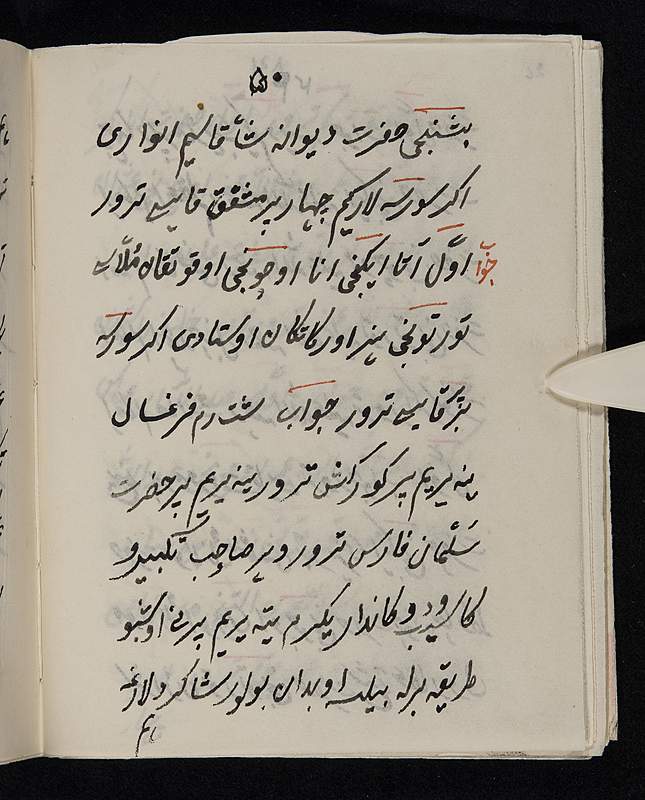 ۵۰
بشنجی حضرت دیوانه شاه قاسیم انواری
اکر سورسه لارکیم چهار پیر مشفق قایسی ترور
جواب اوّل آتا ایکنجی انا اوچونجی اوقوتقان ملّاسی
تورتونجی هنر اورکاتکان اوستادی اکر سورسه
پیر قایسی ترور جواب شت دم فرغسال
ینه پیریم پیر کورکش ترور ینه پیریم پیر حضرت
سَلْمان فارس ترور و پیر صاحب تکبیر و
کاسیب و دکاندار یکرم یته پیریم بیرنی اوشبو
طریقه برله بیلسه اوبدان بولور شاکرد لارغه